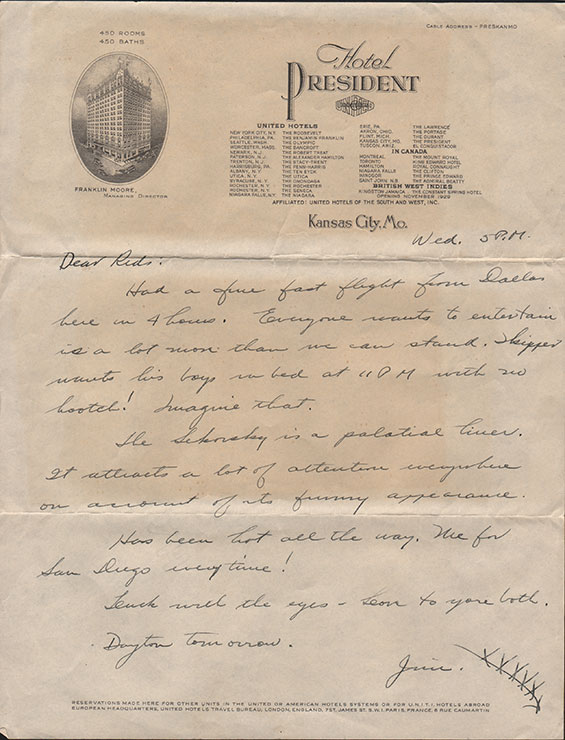 CABLE ADDRESS - PRESKANMO
450 ROOMS
450 BATHS
Hotel
PRESIDENT
FRANKLIN MOORE,
MANAGING DIRECTOR
UNITED HOTELS
NEW YORK CITY, N.Y. THE ROOSEVELT
PHILADELPHIA, PA. THE BENJAMIN FRANKLIN
SEATTLE, WASH. THE OLYMPIC
WORCESTER, MASS. THE BANCROFT
NEWARK, N.J. THE ROBERT TREAT
PATERSON, N.J. THE ALEXANDER HAMILTON
TRENTON, N.J. THE STACY-TRENT
HARRISBURG, PA. THE PENN-HARRIS
ALBANY, N.Y. THE TEN EYCK
UTICA, N.Y. THE UTICA
SYRACUSE, N.Y. THE ONONDAGA
ROCHESTER, N.Y. THE ROCHESTER
ROCHESTER, N.Y. THE SENECA
NIAGARA FALLS, N.Y. THE NIAGARA
ERIE, PA. THE LAWRENCE
AKRON, OHIO THE PORTAGE
FLINT, MICH. THE DURANT
KANSAS CITY, MO. THE PRESIDENT
TUCSON, ARIZ. EL CONQUISTADOR
IN CANADA
MONTREAL THE MOUNT ROYAL
TORONTO KING EDWARD HOTEL
HAMILTON ROYAL CONNAUGHT
NIAGARA FALLS THE CLIFTON
WINDSOR THE PRINCE EDWARD
SAINT JOHN, N.B. THE ADMIRAL BEATTY
BRITISH WEST INDIES
KINGSTON JAMAICA THE CONSTANT SPRING HOTEL
OPENING NOVEMBER 1929
AFFILIATED: UNITED HOTELS OF THE SOUTH AND WEST, INC.
Kansas City, Mo.
Wed. 5 P.M.
Dear Reds:
Had a fine fast flight from Dallas
here in 4 hours. Everyone wants to entertain
is a lot more than we can stand. Skipper
wants his boys in bed at 11 P M with no
hootch! Imagine that.
The Sikorsky is a palatial liner.
It attracts a lot of attention everywhere
on account of its funny appearance.
Has been hot all the way. Me for
San Diego everytime!
Luck with the eyes - Love to you both.
Dayton tomorrow.
Jim. XXXXXX
RESERVATIONS MADE HERE FOR OTHER UNITS IN THE UNITED OR AMERICAN HOTELS SYSTEMS OR FOR U.N.I.T.I. HOTELS ABROAD
EUROPEAN HEADQUARTERS, UNITED HOTELS TRAVEL BUREAU, LONDON, ENGLAND, 7ST. JAMES ST. S.W.1. PARIS, FRANCE, 6 RUE CAUMARTIN